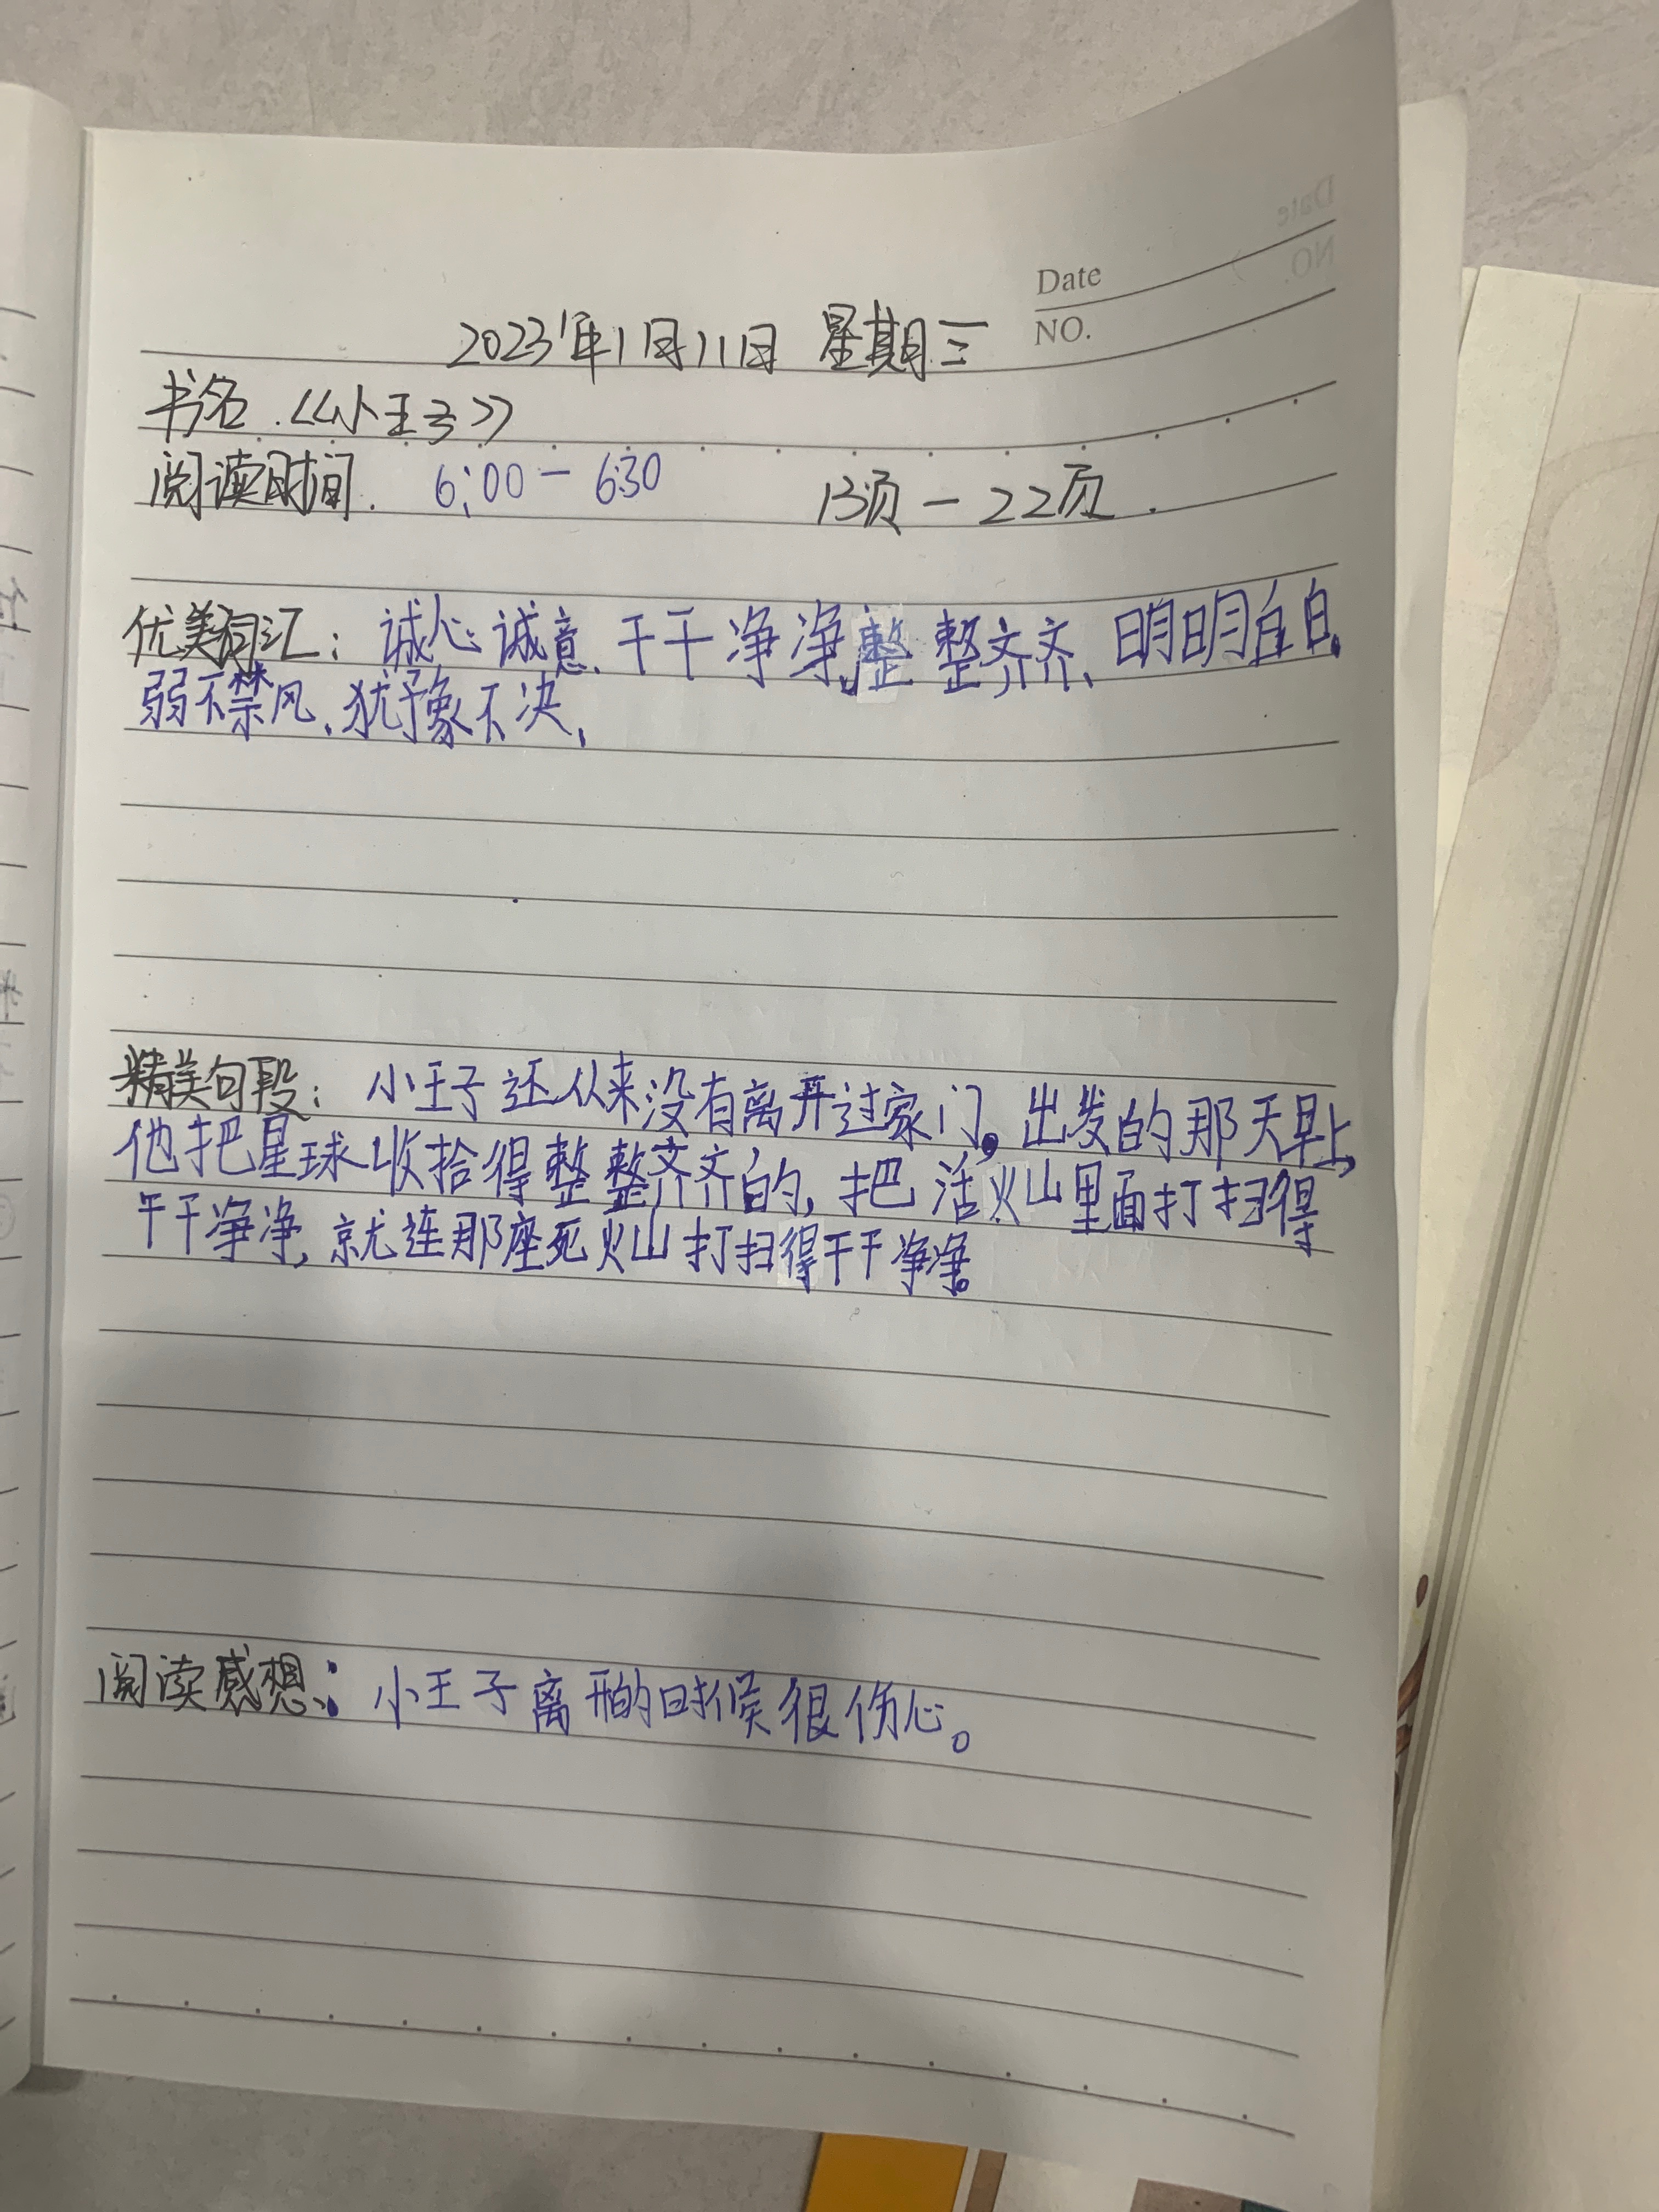 Date
NO.
2023年1月11日 星期三
书名.《小王子》
阅读时间. 6:00-6:30 13页-22页.
优美词汇:诚心诚意、干干净净、整整齐齐、明明白白、
弱不禁风、犹豫不决、
精美句段:小王子还从来没有离开过家门。出发的那天早上,
他把星球收拾得整整齐齐的,把活火山里面打扫得
干干净净,就连那座死火山打扫得干干净净。
阅读感想:小王子离开的时候很伤心。